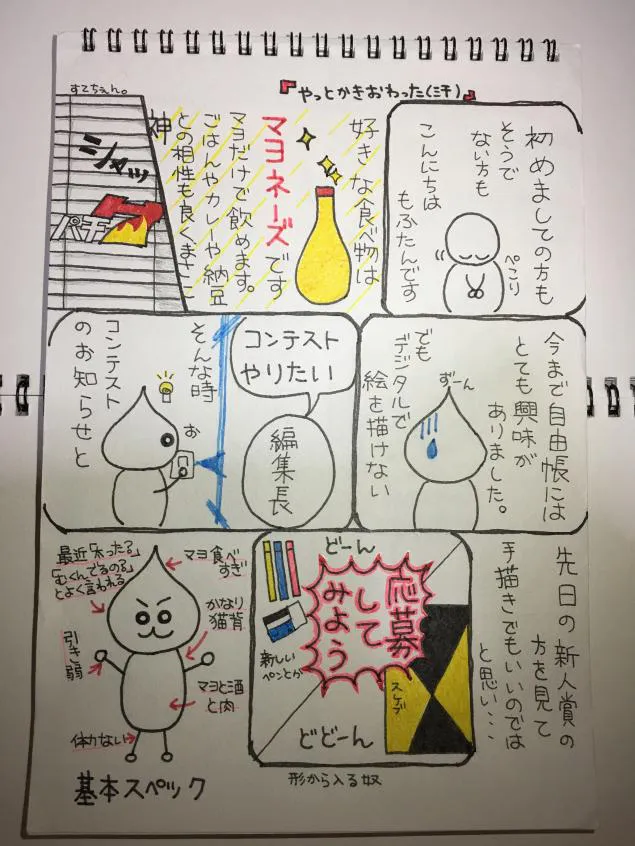 『やっとかきおわった(汗)』
初めましての方も
そうで
ない方も
こんにちは
もふたんです
ぺこり
好きな食べ物は
マヨネーズです
マヨだけで飲めます。
ごはんやカレーや納豆
との相性も良くまさに
神
すてちぇん。
シャッ
パチ
今まで自由帳には
とても興味が
ありました。
でも
デジタルで
絵を描けない
ずーん
コンテスト
やりたい
編集長
そんな時
お
コンテスト
のお知らせと
先日の新人賞の
方を見て
手描きでもいいのでは
と思い…
どーん
応募
して
みよう
新しい
ペンとか
スケブ
どどーん
形から入る奴
最近「太った?」
「むくんでるの?」
とよく言われる
マヨ食べ
すぎ
かなり
猫背
引き
弱
マヨと酒
と肉
体力ない
基本スペック